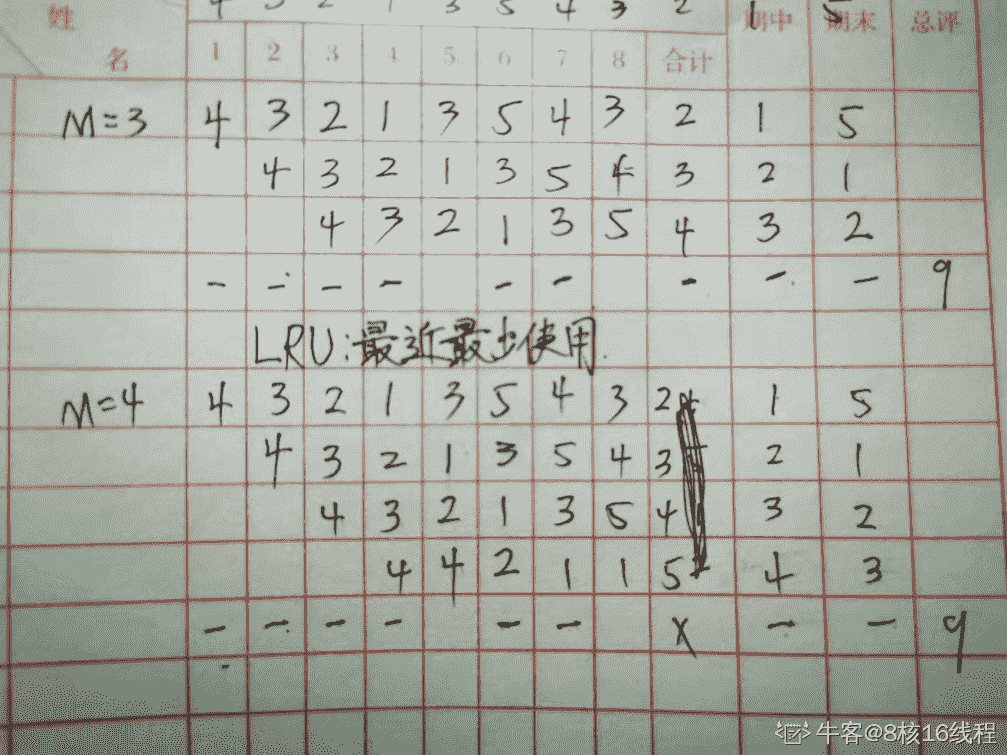 4 3 2 1 3 5 4 3 2 1 5
姓 期中 期末 总评
名 1 2 3 4 5 6 7 8 合计
M=3 4 3 2 1 3 5 4 3 2 1 5
4 3 2 1 3 5 4 3 2 1
4 3 2 1 3 5 4 3 2
- - - - - - - - - 9
LRU:最近最少使用.
M=4 4 3 2 1 3 5 4 3 2 1 5
4 3 2 1 3 5 4 3 2 1
4 3 2 1 3 5 4 3 2
4 4 2 1 1 5 4 3
- - - - - - x - - 9
牛客@8核16线程